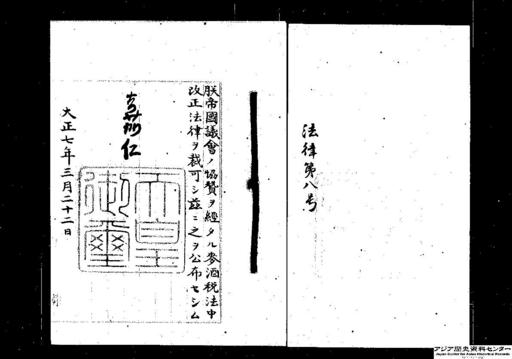 法律第八号
朕帝國議會ノ協賛ヲ經タル麥酒税法中
改正法律ヲ裁可シ茲ニ之ヲ公布セシム
嘉仁
天皇
御璽
大正七年三月二十二日
アジア歴史資料センター
Japan Center for Asian Historical Records